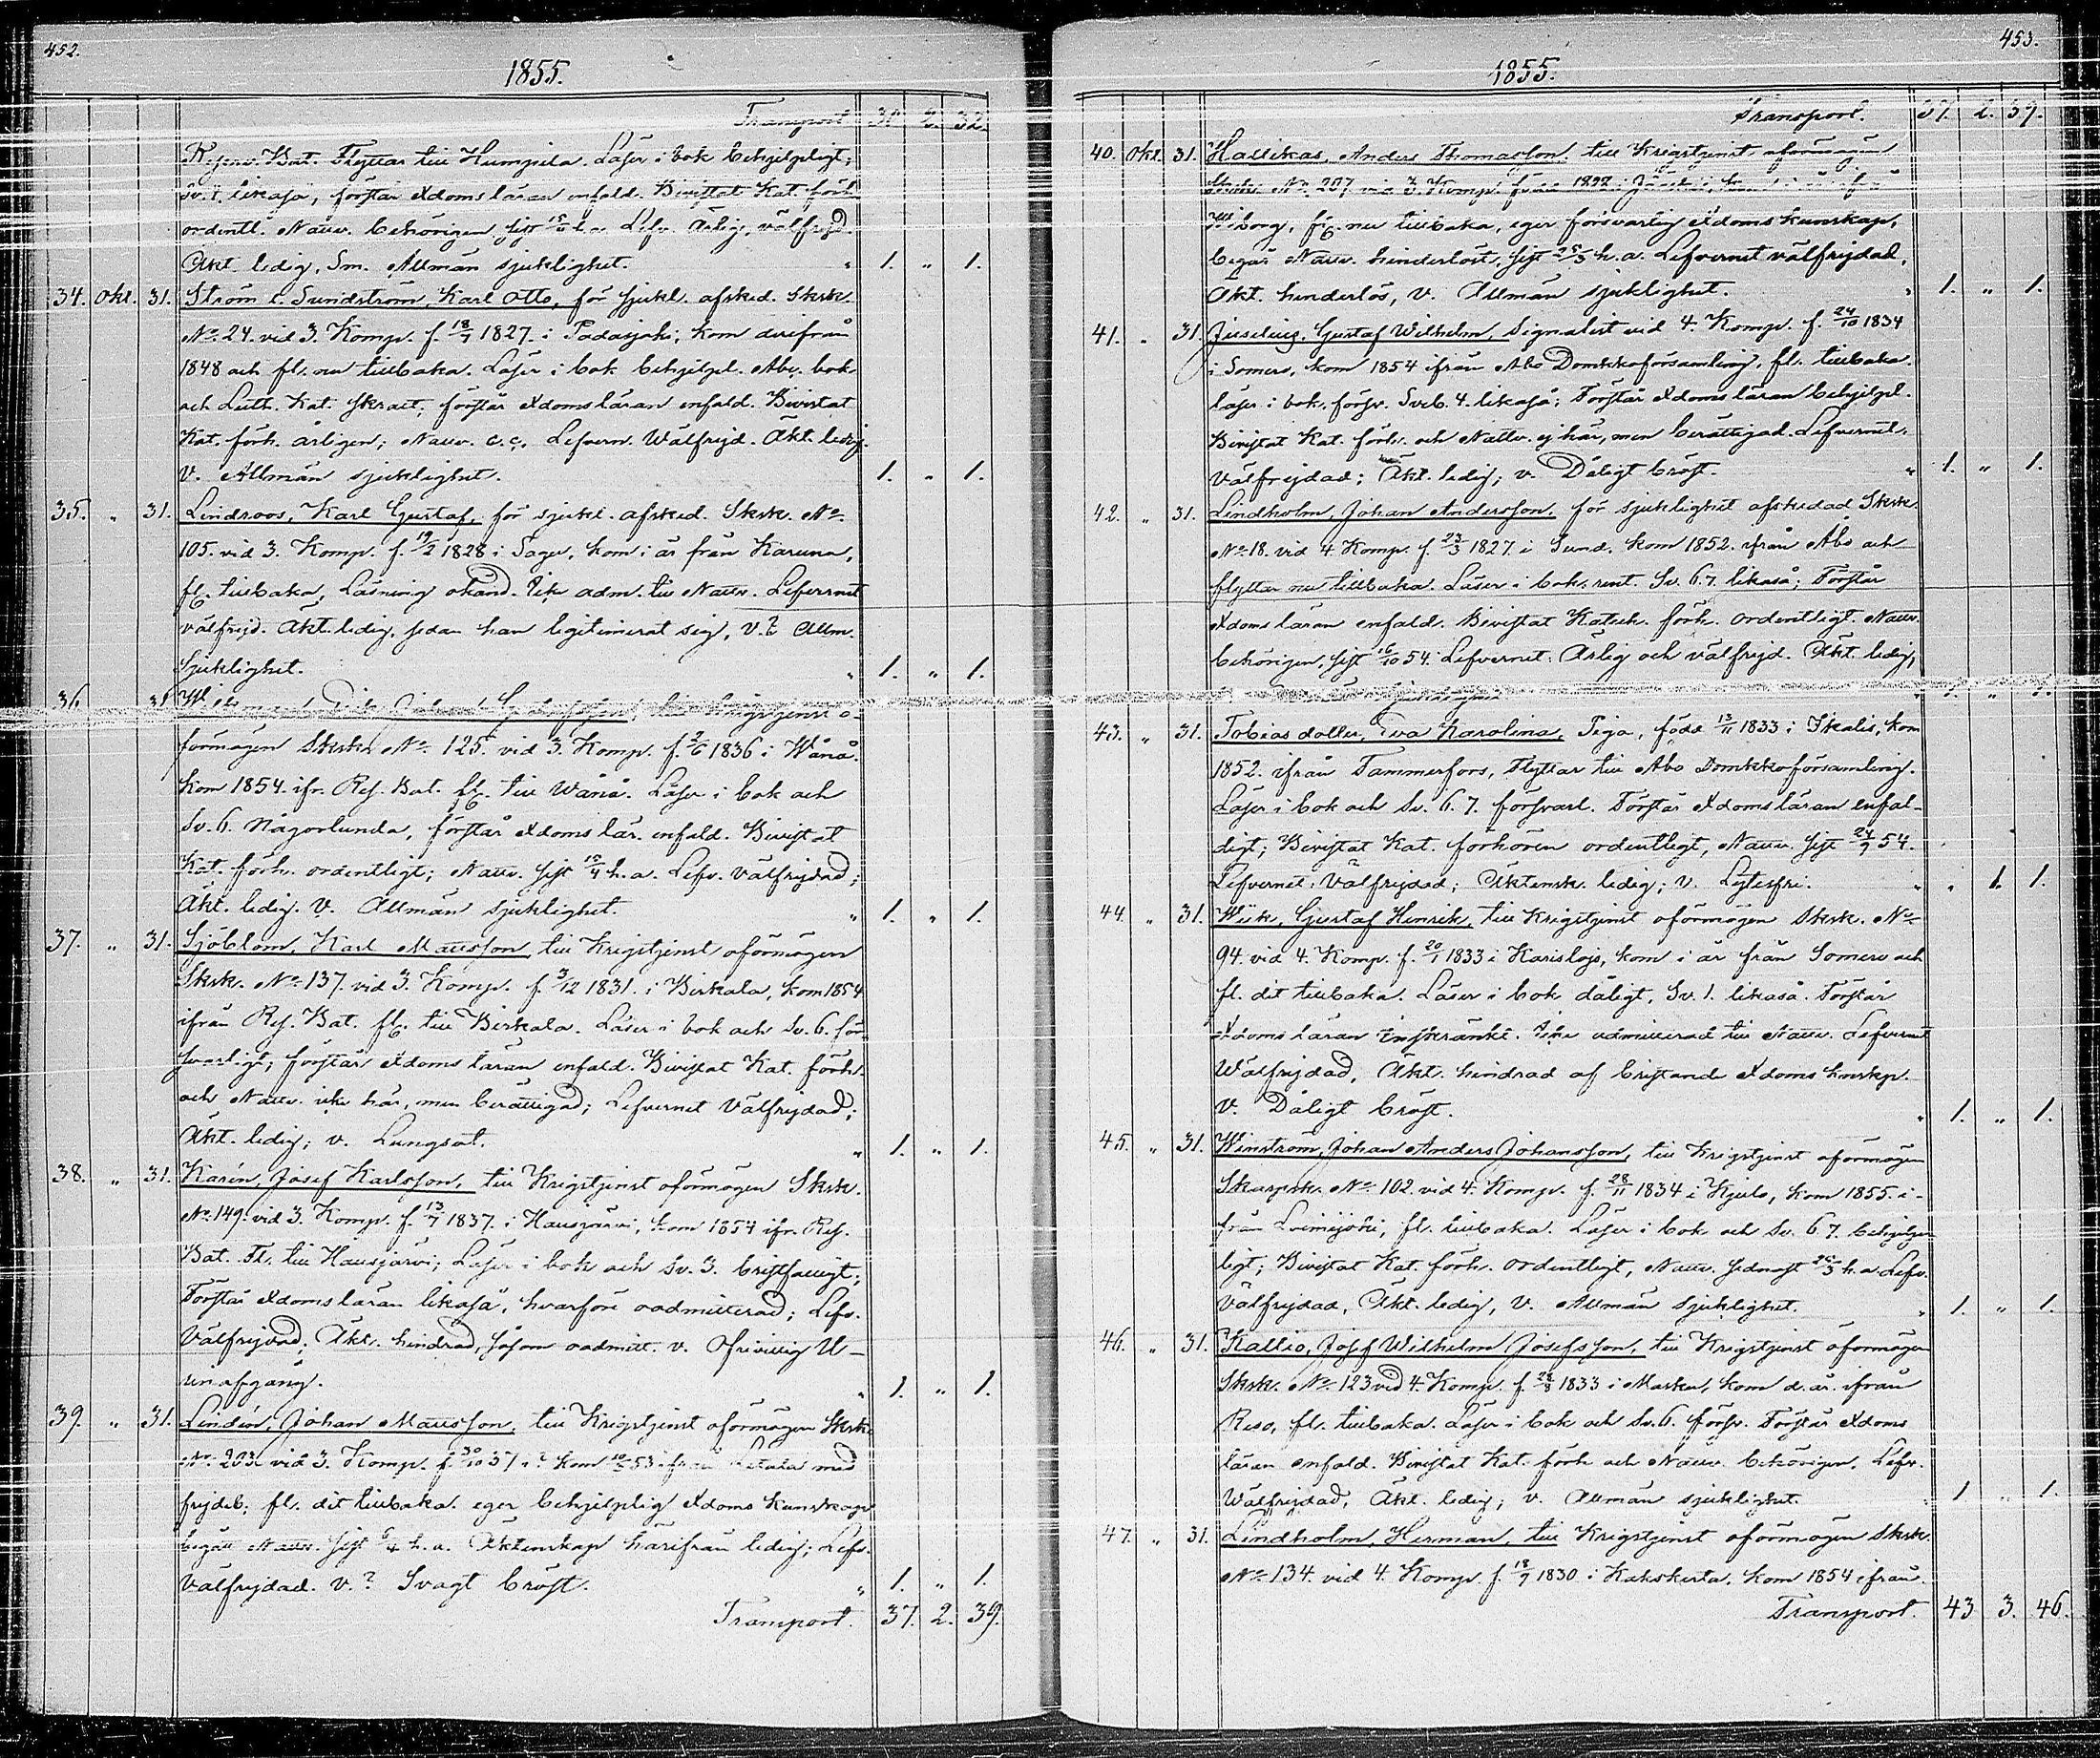 452.
1855.
Transport 31. 2. 32.
Reserv. Bat. Flyttar till Humpila. Läser i bok behjelpligt;
Sv. 1. likaså, förstår Xdoms läran enfald. Bivistat Kat. förh.
ordentl. Nattv. behörigen sist h.a. Lefv. Ärlig, välfrejd.
Äkt. ledig, Sm. Allmän sjuklighet. " 1. " 1.
34. Okt. 31. Ström l. Sundström, Karl Otto, för sjukl. afsked. Skrk.
No. 24. vid 3. Komp. f. 18/7 1827. i Padasjoki, kom derifrån
1848 och fl. nu tillbaka. Läser i bok behjelpl. Abc. bok
och Luth. Kat. skralt; förstår Xdoms läran enfald. Bivistat
Kat. förh. årligen; Nattv. c.c. Lefvern. Wälfrejd. Äkt. ledig.
V. Allmän sjuklighet. 1. " 1.
35. " 31. Lindroos, Karl Gustaf, för sjukl. afsked. Skrk. No.
105. vid 3. Komp. f. 19/2 1828 i Sagu, kom i år från Karuna,
fl. tillbaka, Läsning okänd. Icke adm. till Nattv. Lefvernet
välfrejd. Äkt. ledig, sedan han legitimerat sig, V.? Allm.
Sjuklighet. " 1. " 1.
36. 31. till krigstjenst o-
förmögen Skrk. No. 125. vid 3. Komp. f. 2/6 1836 i Wånå.
kom 1854. ifr. Res. Bat. fl. till Wånå. Läser i bok och
Sv. 6. Någorlunda, förstår Xdoms lär. enfald. Bivistat
Kat. förh. ordentligt; Nattv. sist 15/4 h.a. Lefv. Välfrejdad;
Äkt. ledig. V. Allmän sjuklighet. " 1. " 1.
37. " 31. Sjöblom, Karl Mattsson, till Krigstjenst oförmögen
Skrk. No. 137. vid 3. Komp. f. 3/12 1831. i Birkala, kom 1854
ifrån Res. Bat. fl. till Birkala. Läser i bok och Sv. 6. för-
svarligt; förstår Xdoms läran enfald. Bivistat Kat. förh.
och Nattv. icke här, men berättigad; Lefvernet Välfrejdad;
Äkt. ledig; v. Lungsot. " 1. " 1.
38. " 31. Karén, Josef Karlsson, till Krigstjenst oförmögen Skrk.
No. 149. vid 3. Komp. f. 13/7 1837. i Hausjärvi, kom 1854 ifr. Res.
Bat. Fl. till Hausjärvi; Läser i bok och Sv. 3. bristfälligt;
Förstår Xdoms läran likaså, hvarföre oadmitterad; Lefv.
Välfrejdad; Äkt. hindrad, såsom oadmitt. v. Ofrivillig U-
rinafgång. " 1. " 1.
39. " 31. Lindén, Johan Mattsson, till Krigstjenst oförmögen Skrk.
No. 203. vid 3. Komp. f. 30/10 37 i ? kom 53 ifrån med
frejdeb. fl. dit tillbaka. eger behjelplig Xdoms kunskap
begått Nattv. sist 6/4 h.a. Äktenskap härifrån ledig; Lefv.
Välfrejdad. v.? Svagt bröst. " 1. " 1.
Transport. 37. 2. 39.
453.
1855.
Transport. 37. 2. 39.
40. Okt. 31. Hallikas, Anders Thomasson, till Krigstjenst oförmögen
Skrk. No. 207 vid 3. Komp.
Wiborg, fl. nu tillbaka, eger försvarlig Xdoms kunskap,
begår Nattv. hinderlöst, sist 25/3 h.a. Lefvernet välfrejdad,
Äkt. hinderlös, v. Allmän sjuklighet. " 1. " 1.
41. " 31. Juselius, Gustaf Wilhelm, Signalist vid 4. Komp. f. 24/10 1834
i Somero, kom 1854 ifrån Åbo Domkkoförsamling, fl. tillbaka.
läser i bok. försv. Sveb. 4. likaså; Förstår Xdoms läran behjelpl.
Bivistat Kat. förh. och Nattv. ej här, men berättigad. Lefvernet
Välfrejdad; Äkt. ledig; v. Dåligt bröst. " 1. " 1.
42. " 31. Lindholm, Johan Andersson, för sjuklighet afskedad Skrk.
No. 18. vid 4. Komp. f. 23/3 1827. i Sund. kom 1852. ifrån Åbo och
flyttar nu tillbaka. Läser i bok. rent. Sv. 6.7. likaså; Förstår
Xdoms läran enfald. Bivistat Katech. förh. ordentligt. Nattv.
behörigen, sist 16/10 54. Lefvernet: Ärlig och välfrejd. Äkt. ledig,
43. " 31. Tobias dotter, Eva Karolina, Piga, född 13/11 1833 i Ikalis, kom
1852. ifrån Tammerfors, Flyttar till Åbo Domkkoförsamling.
Läser i bok och Sv. 6. 7. försvarl. Förstår Xdoms läran enfal-
digt; Bivistat Kat. förhören ordentligt, Nattv. sist 24/9 54.
Lefvernet: Välfrejdad; Äktensk. ledig; v. Lytesfri. " " 1. 1.
44. " 31. Wiik, Gustaf Henrik, till Krigstjenst oförmögen Skrk. No.
94. vid 4. Komp. f. 20/1 1833 i Karislojo, kom i år från Somero och
fl. dit tillbaka. Läser i bok dåligt, Sv. 1. likaså. Förstår
Xdoms läran inskränkt. Icke admitterad till Nattv. Lefvernet
Wälfrejdad, Äkt. hindrad af bristande Xdoms knskp.
V. Dåligt bröst. " 1. " 1.
45. " 31. Winström, Johan Anders Johansson, till Krigstjenst oförmögen
Skarpsk. No. 102. vid 4. Komp. f. 28/11 1834 i Kjulo, kom 1855. i-
från Loimijoki, fl. tillbaka. Läser i bok och Sv. 6 7. behjelp-
ligt; Bivistat Kat. förh. ordentligt, Nattv. sednast 25/3 h.a. Lefv.
Välfrejdad, Äkt. ledig, V. Allmän sjuklighet. " 1. " 1.
46. " 31. Kallio, Josef Wilhelm Josefsson, till Krigstjenst oförmögen
Skrk. No. 123 vid 4. Komp. f. 1833 i Masku, kom d. år. ifrån
Reso, fl. tillbaka. Läser i bok och Sv. 6. försv. Förstår Xdoms
läran enfald. Bivistat Kat. förh och Nattv. behörigen. Lefv.
Wälfrejdad, Äkt. ledig; v. Allmän sjuklighet. " 1 " 1.
47. " 31. Lindholm, Herman, till Krigstjenst oförmögen Skrk.
No. 134. vid 4. Komp. f. 18/7 1830 i Kakskerta, kom 1854 ifrån
Transport. 43 3. 46.